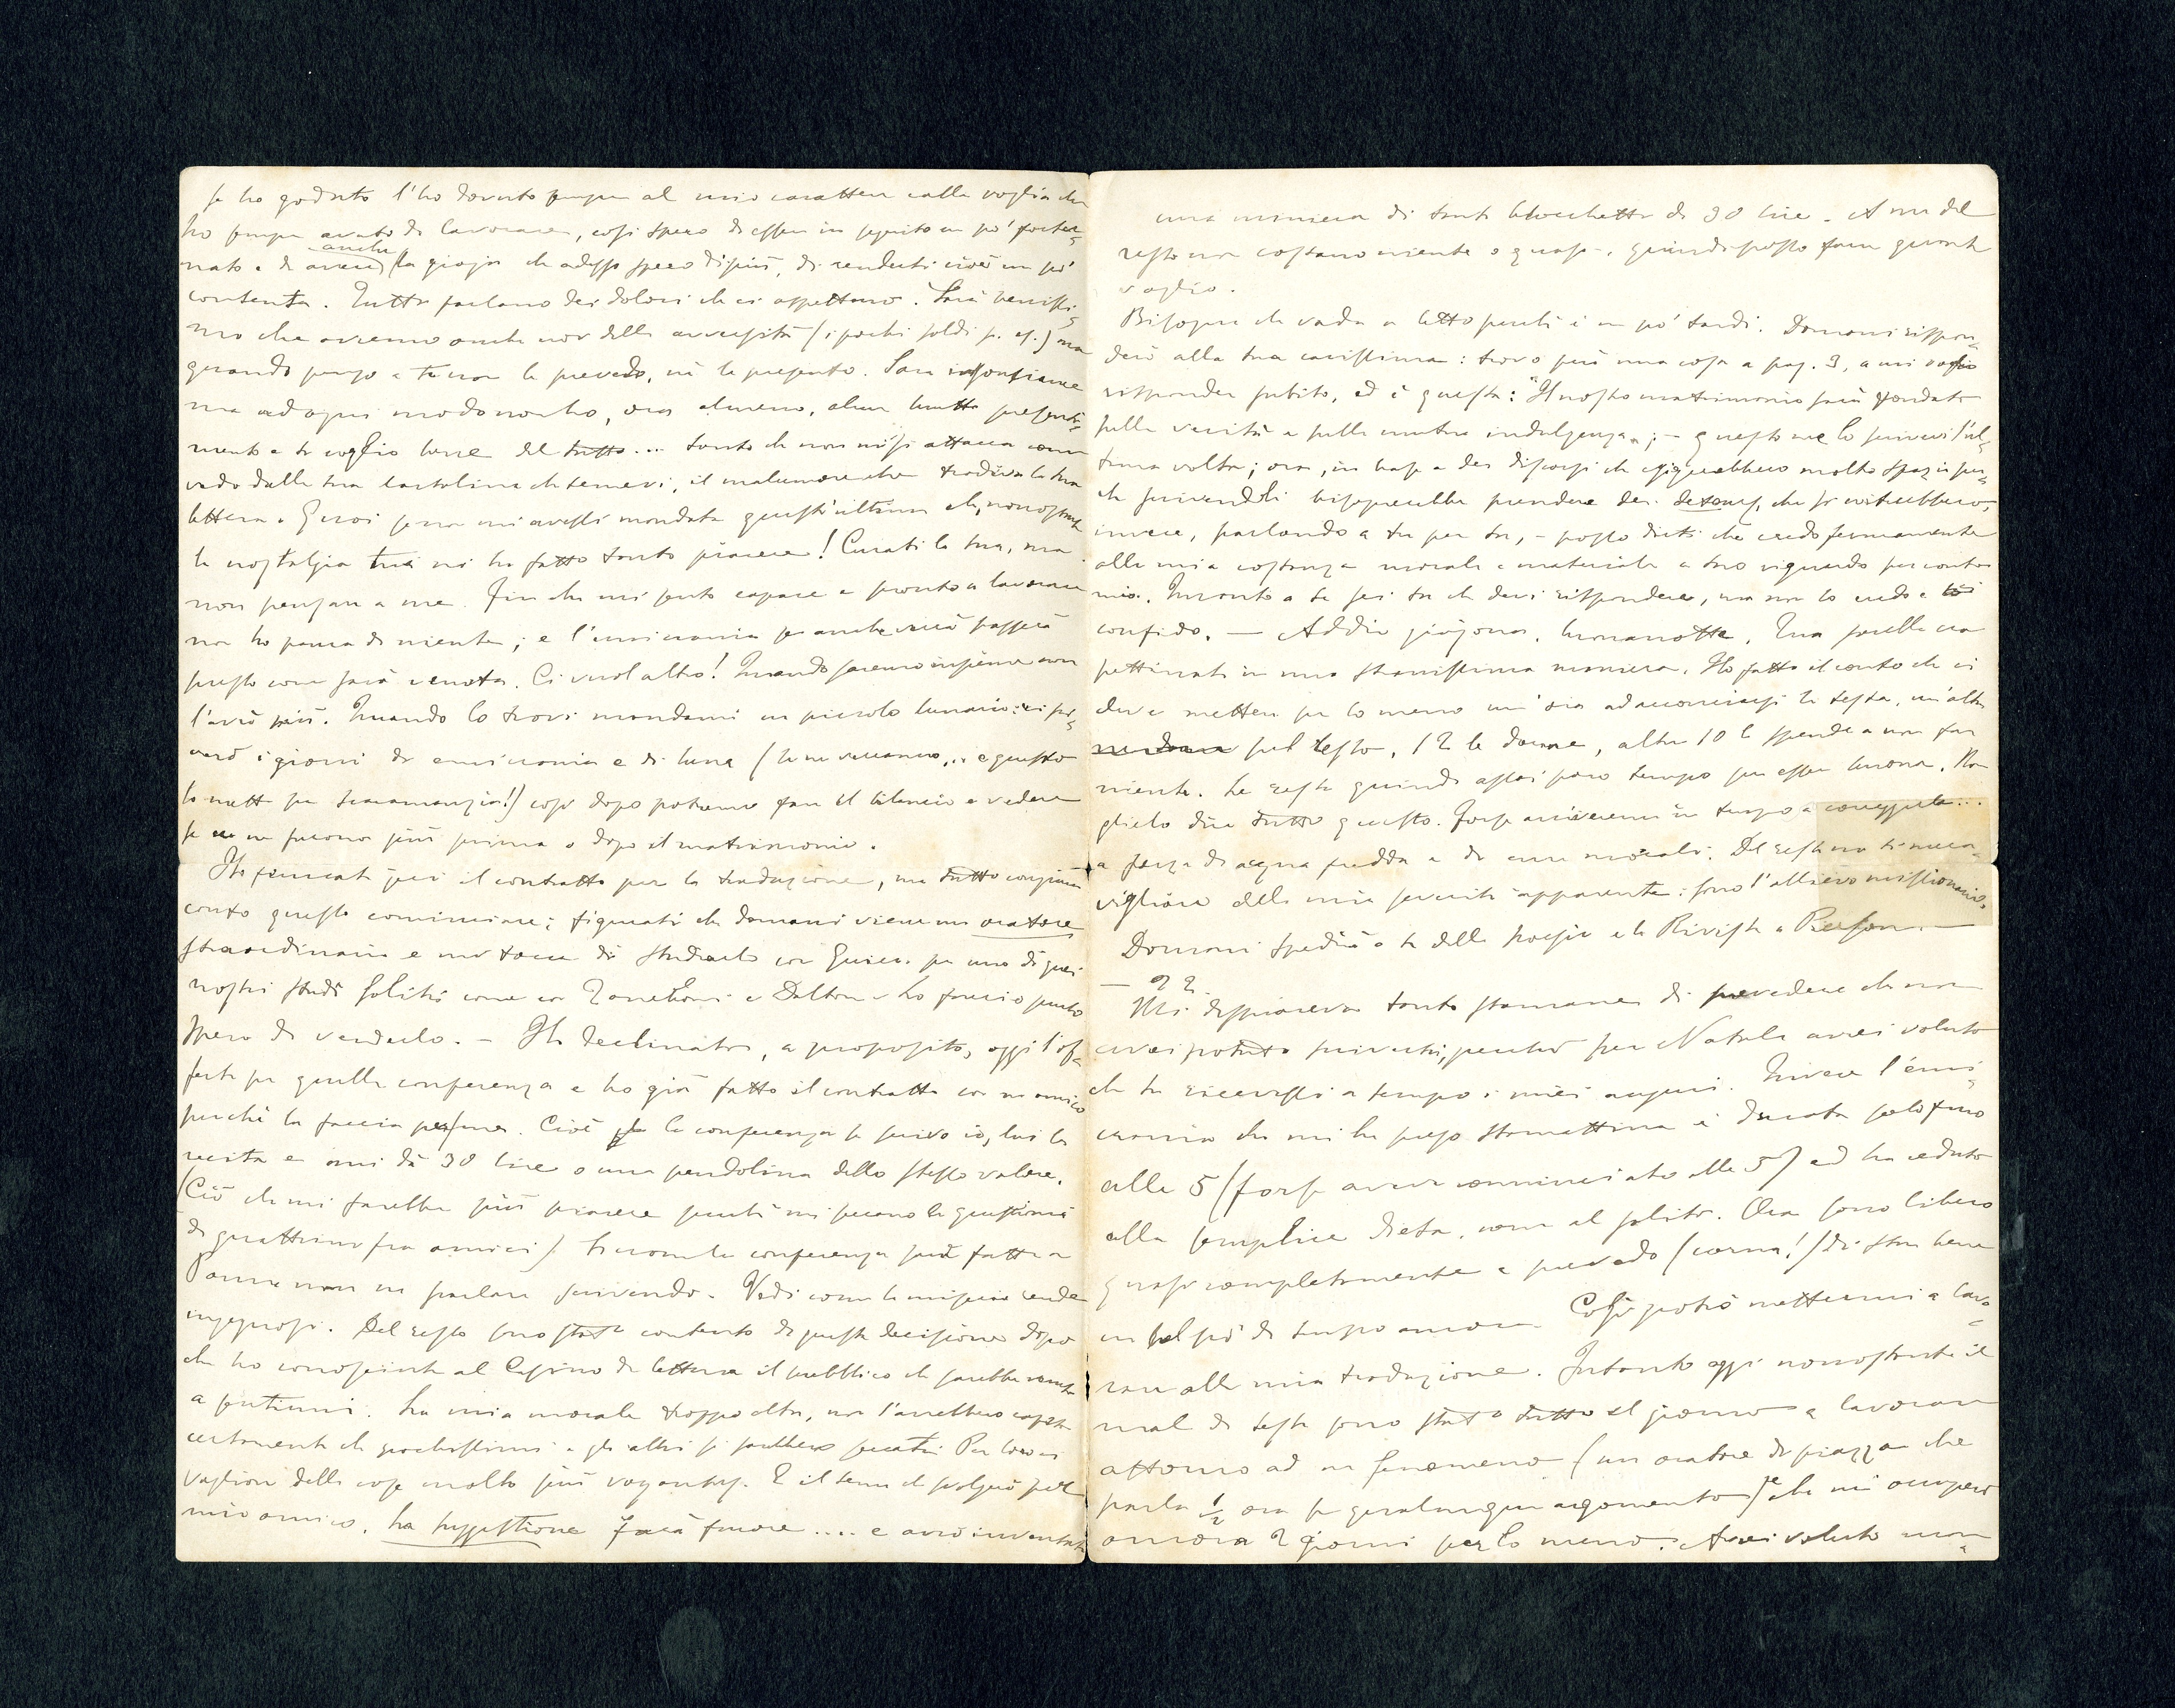 se ho goduto l'ho dovuto sempre al mio carattere e alla voglia che
ho sempre avuto di lavorare, così spero di essere in seguito un po' fortu-
nato e di avere anche la gioja che adesso spero di più, di renderti cioè un po'
contenta. Tutti parlano dei dolori che ci aspettano. Sarà verissi-
mo che avremo anche noi delle avversità (i pochi soldi p. es.) ma
quando penso a te non le prevedo, nè le presento. Sarà
ma ad ogni modo non ho, ora almeno, alcun brutto presenti-
mento e ti voglio bene del tutto... tanto che non mi si attacca come
vedo dalla tua cartolina che temevi, il malumore che tradiva la tua
lettera. Guai se non mi avessi mandata quest'ultima che, nonostante
la nostalgia tua mi ha fatto tanto piacere! Curati la tua, ma
non pensare a me. Fin che mi sento capace e pronto a lavorare
non ho paura di niente; e l'emicrania se anche verrà passerà
presto come sarà venuta. Ci vuol altro! Quando saremo insieme non
l'avrò più. Quando lo trovi mandami un piccolo lunario: ci se-
gnerò i giorni di emicrania e di luna (se ne verranno... e questo
lo metti per scaramanzia!) così dopo potremo fare il bilancio e vedere
se ce ne furono più prima o dopo il matrimonio.
Ho firmato ieri il contratto per la traduzione, ma tutto congiura
contro questo cominciare; figurati che domani viene un oratore
straordinario e mi tocca di studiarlo con Guicci. per uno di quei
nostri studi soliti come con Zanetti e Dalton. Lo faccio perchè
spero di venderlo. - Ho declinato, a proposito, oggi l'of-
ferta per quella conferenza e ho già fatto il contratto con un amico
perchè la faccia per me. Cioè la conferenza la scrivo io, lui la
recita e mi dà 30 lire o una pendolina dello stesso valore.
(Ciò che mi farebbe più piacere perchè mi seccano le questioni
di quattrini fra amici). Siccome la conferenza sarà fatta a
Parma non ne parlare scrivendo. Vedi come la miseria rende
ingegnosi. Del resto sono stato contento di questa decisione dopo
che ho conosciuto al Casino di lettura il pubblico che sarebbe venuto
a sentirmi. La mia morale troppo alta, non l'avrebbero capita
certamente che pochissimi e gli altri si sarebbero seccati. Per loro ci
vogliono delle cose molto più voyantes. E il tema che svolgerà pel
mio amico, La suggestione farà furore .... e avrò inventata
una miniera di tanti blocchetti di 30 lire. A me del
resto non costano niente o quasi, quindi posso farne quante
voglio.
Bisogna che vada a letto perchè è un po' tardi. Domani rispon-
derò alla tua carissima: trovo però una cosa a pag. 3, a cui voglio
rispondere subito, ed è questa: "Il nostro matrimonio sarà fondato
sulla verità e sulla mutua indulgenza"; - questo me lo scrivevi l'ul-
tima volta; ora, in base a dei discorsi che esigerebbero molto spazio per-
chè scrivendoli bisognerebbe prendere dei detours, che si eviterebbero,
invece, parlando a tu per tu, - posso dirti che credo fermamente
alla mia costanza morale e materiale a tuo riguardo per conto
mio. Quanto a te sei tu che devi rispondere, ma non lo credo e
confido. - Addio giojona, buonanotte. Tua sorella era
pettinata in una stranissima maniera. Ho fatto il conto che ci
deve mettere per lo meno un'ora ad acconciarsi la testa, un'altra
pel resto, 12 le dorme, altre 10 le spende a non far
niente. Le resta quindi assai poco tempo per esser buona. Non
glielo dire tutto questo. Forse arriveremo in tempo a correggerla...
a forza di acqua fredda e di cure morali. Del resto non ti mera-
vigliare della mia severità apparente: sono l'allievo missionario.
Domani spedirò a te delle poesie e la Rivista a
- 22.
Mi dispiaceva tanto stamane di prevedere che non
avrei potuto scriverti, perchè per Natale avrei voluto
che tu ricevessi a tempo i miei auguri. Invece l'emi-
crania che mi ha preso stamattina è durata solo fino
alle 5 (forse aveva cominciato alle 5) ed ha ceduto
alla semplice dieta, come al solito. Ora sono libero
quasi completamente e prevedo (corna!) di star bene
un bel po' di tempo ancora. Così potrò mettermi a lavo-
rare alla mia traduzione. Intanto oggi nonostante il
mal di testa sono stato tutto il giorno a lavorare
attorno ad un fenomeno (un oratore di piazza che
parla 1/2 ora su qualunque argomento) e che mi occuperà
ancora 2 giorni per lo meno. Avrei voluto man-